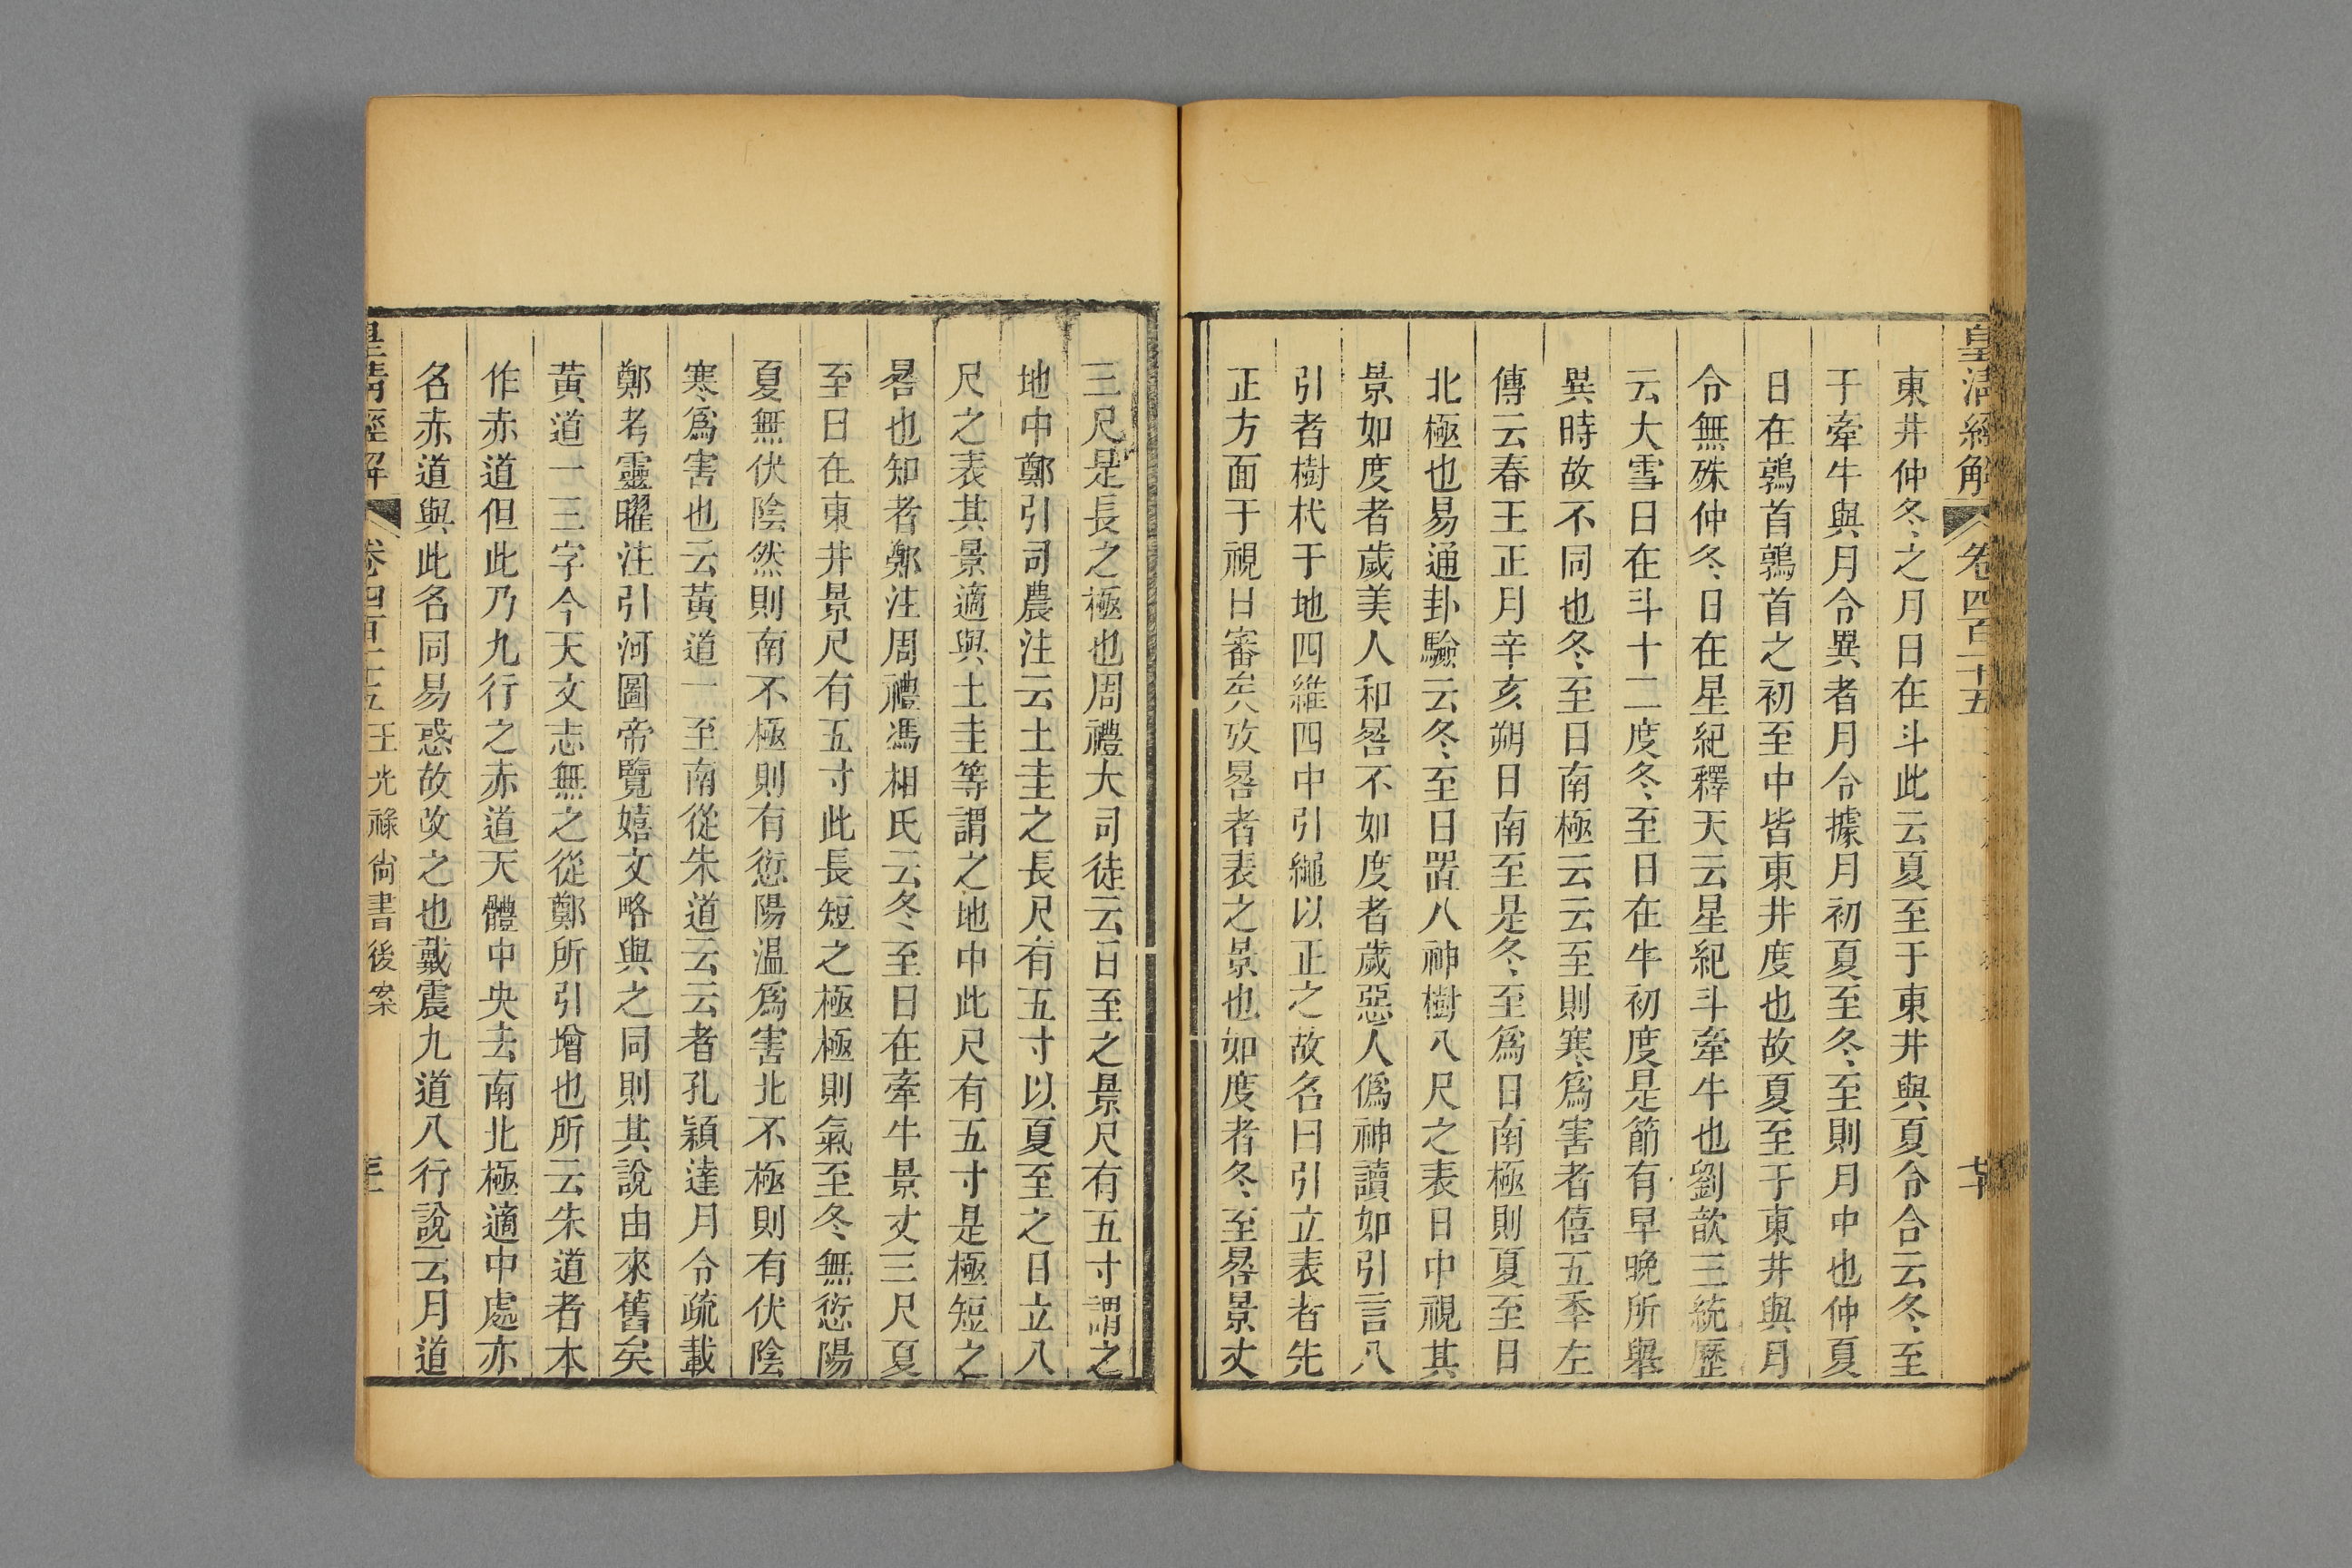 皇清經解 卷四百十五
東井仲冬之月日在斗此云夏至于東井與夏令合云冬至
于牽牛與月令異者月令據月初夏至冬至則月中也仲夏
日在鶉首鶉首之初至中皆東井度也故夏至于東井與月
令無殊仲冬日在星紀釋天云星紀斗牽牛也劉歆三統歷
云大雪日在斗十二度冬至日在牛初度是節有早晚所舉
異時故不同也冬至日南極云云至則寒爲害者僖五年左
傳云春王正月辛亥朔日南至是冬至爲日南極則夏至日
北極也易通卦驗云冬至日置八神樹八尺之表日中視其
景如度者歲美人和晷不如度者歲惡人僞神讀如引言八
引者樹杙于地四維四中引繩以正之故名曰引立表者先
正方面于視日審矣攷晷者表之景也如度者冬至晷景丈
三尺是長之極也周禮大司徒云日至之景尺有五寸謂之
地中鄭引司農注云土圭之長尺有五寸以夏至之日立八
尺之表其景適與土圭等謂之地中此尺有五寸是極短之
晷也知者鄭注周禮馮相氏云冬至日在牽牛景丈三尺夏
至日在東井景尺有五寸此長短之極極則氣至冬無愆陽
夏無伏陰然則南不極則有愆陽溫爲害北不極則有伏陰
寒爲害也云黃道一至南從朱道云云者孔穎達月令疏載
鄭考靈曜注引河圖帝覽嬉文略與之同則其說由來舊矣
黃道一三字今天文志無之從鄭所引增也所云朱道者本
作赤道但此乃九行之赤道天體中央去南北極適中處亦
名赤道與此名同易惑故改之也戴震九道八行說云月道
皇清經解 卷四百十五 王光祿尚書後案